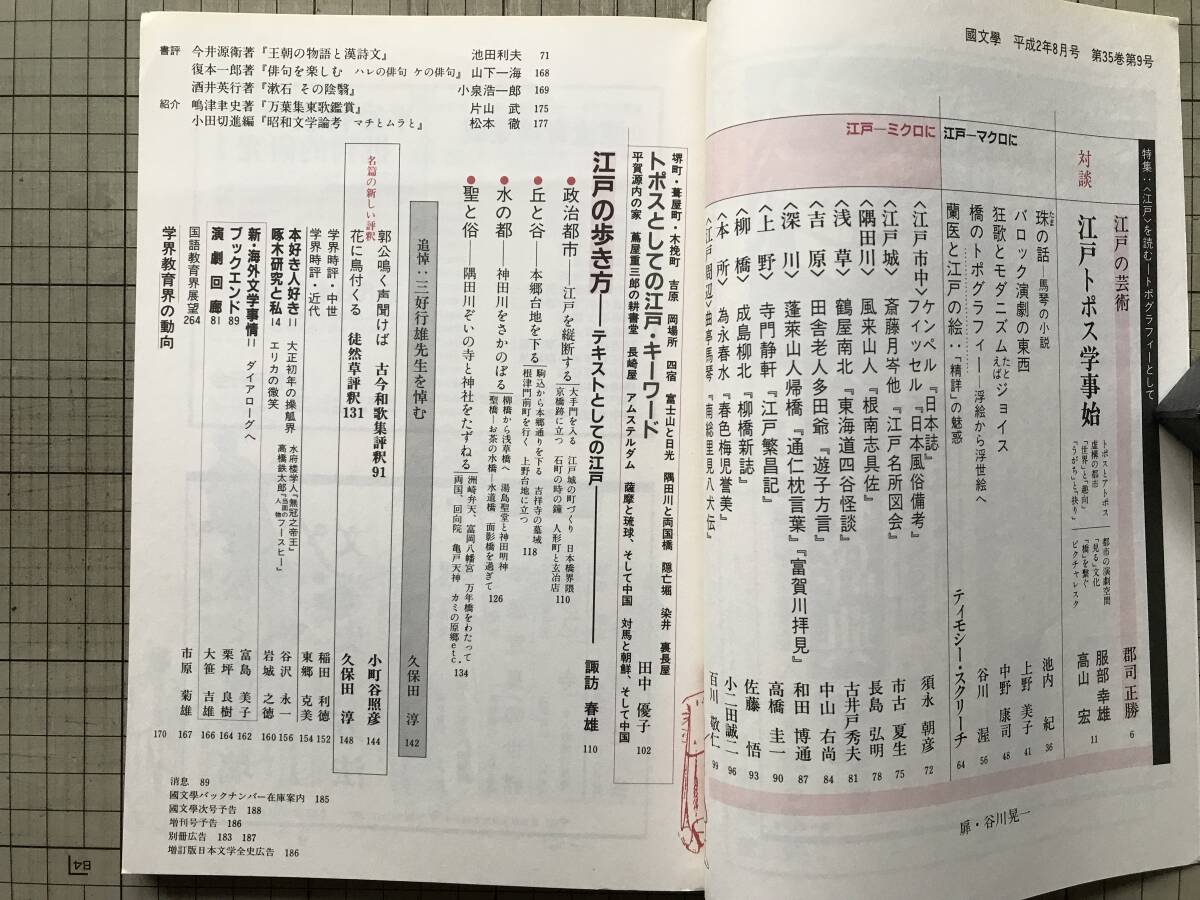 國文學 平成2年8月号 第35巻第9号
特集:〈江戸〉を読む―トポグラフィーとして
江戸の芸術 郡司正勝 6
対談 江戸トポス学事始 服部幸雄 高山宏 11
トポスとアトポス
虚構の都市
「世界」と「趣向」
「うがち」と「抉り」
都市の演劇空間
「見る」文化
「橋」を繋ぐ
ピクチャレスク
江戸―マクロに
珠の話――馬琴の小説 池内紀 36
バロック演劇の東西 上野美子 41
狂歌とモダニズム たとえばジョイス 中野康司 48
橋のトポグラフィー――浮絵から浮世絵へ 谷川渥 56
蘭医と江戸の絵:「精詳」の魅惑 ティモシー・スクリーチ 64
江戸―ミクロに
〈江戸市中〉ケンペル『日本誌』
フィッセル『日本風俗備考』 須永朝彦 72
〈江戸城〉斎藤月岑他『江戸名所図会』 市古夏生 75
〈隅田川〉風来山人『根南志具佐』 長島弘明 78
〈浅草〉鶴屋南北『東海道四谷怪談』 古井戸秀夫 81
〈吉原〉田舎老人多田爺『遊子方言』 中山右尚 84
〈深川〉蓬萊山人帰橋『通仁枕言葉』『富賀川拝見』 和田博通 87
〈上野〉寺門静軒『江戸繁昌記』 高橋圭一 90
〈柳橋〉成島柳北『柳橋新誌』 佐藤悟 93
〈本所〉為永春水『春色梅児誉美』 小二田誠二 96
〈江戸周辺〉曲亭馬琴『南総里見八犬伝』 百川敬仁 99
扉・谷川晃一
書評 今井源衛著『王朝の物語と漢詩文』 池田利夫 71
復本一郎著『俳句を楽しむ ハレの俳句 ケの俳句』 山下一海 168
酒井英行著『漱石 その陰翳』 小泉浩一郎 169
紹介 嶋津聿史著『万葉集東歌鑑賞』 片山武 175
小田切進編『昭和文学論考 マチとムラと』 松本徹 177
トポスとしての江戸・キーワード 田中優子 102
堺町・葺屋町・木挽町 吉原 岡場所 四宿 富士山と日光 隅田川と両国橋 隠亡堀 染井 裏長屋
平賀源内の家 蔦屋重三郎の耕書堂 長崎屋 アムステルダム 薩摩と琉球、そして中国 対馬と朝鮮、そして中国
江戸の歩き方――テキストとしての江戸 諏訪春雄 110
●政治都市――江戸を縦断する
大手門を入る 江戸城の町づくり 日本橋界隈
京橋跡に立つ 石町の時の鐘 人形町と玄冶店 110
●丘と谷――本郷台地を下る
駒込から本郷通りを下る 吉祥寺の墓域
根津門前町を行く 上野台地に立つ 118
●水の都――神田川をさかのぼる
柳橋から浅草橋へ 湯島聖堂と神田明神
聖橋―お茶の水橋 水道橋 面影橋を過ぎて 126
●聖と俗――隅田川ぞいの寺と神社をたずねる
洲崎弁天、富岡八幡宮 万年橋をわたって
両国、回向院 亀戸天神 カミの原郷etc. 134
追悼:三好行雄先生を悼む 久保田淳 142
名篇の新しい評釈
郭公鳴く声聞けば 古今和歌集評釈91 小町谷照彦 144
花に鳥付くる 徒然草評釈131 久保田淳 148
学界時評・中世 稲田利徳 152
学界時評・近代 東郷克美 154
本好き人好き11 大正初年の操觚界 水府楼学人『無冠之帝王』 高橋鉄太郎『当面の人物フースヒー』 谷沢永一 156
啄木研究と私14 エリカの微笑 岩城之徳 160
新・海外文学事情11 ダイアローグへ 富島美子 162
ブックエンド89 栗坪良樹 164
演劇回廊81 大笹吉雄 166
国語教育界展望264 市原菊雄 167
学界教育界の動向 170
消息 89
國文學バックナンバー在庫案内 185
國文學次号予告 188
増刊号予告 186
別冊広告 183 187
増訂版日本文学全史広告 186
B4